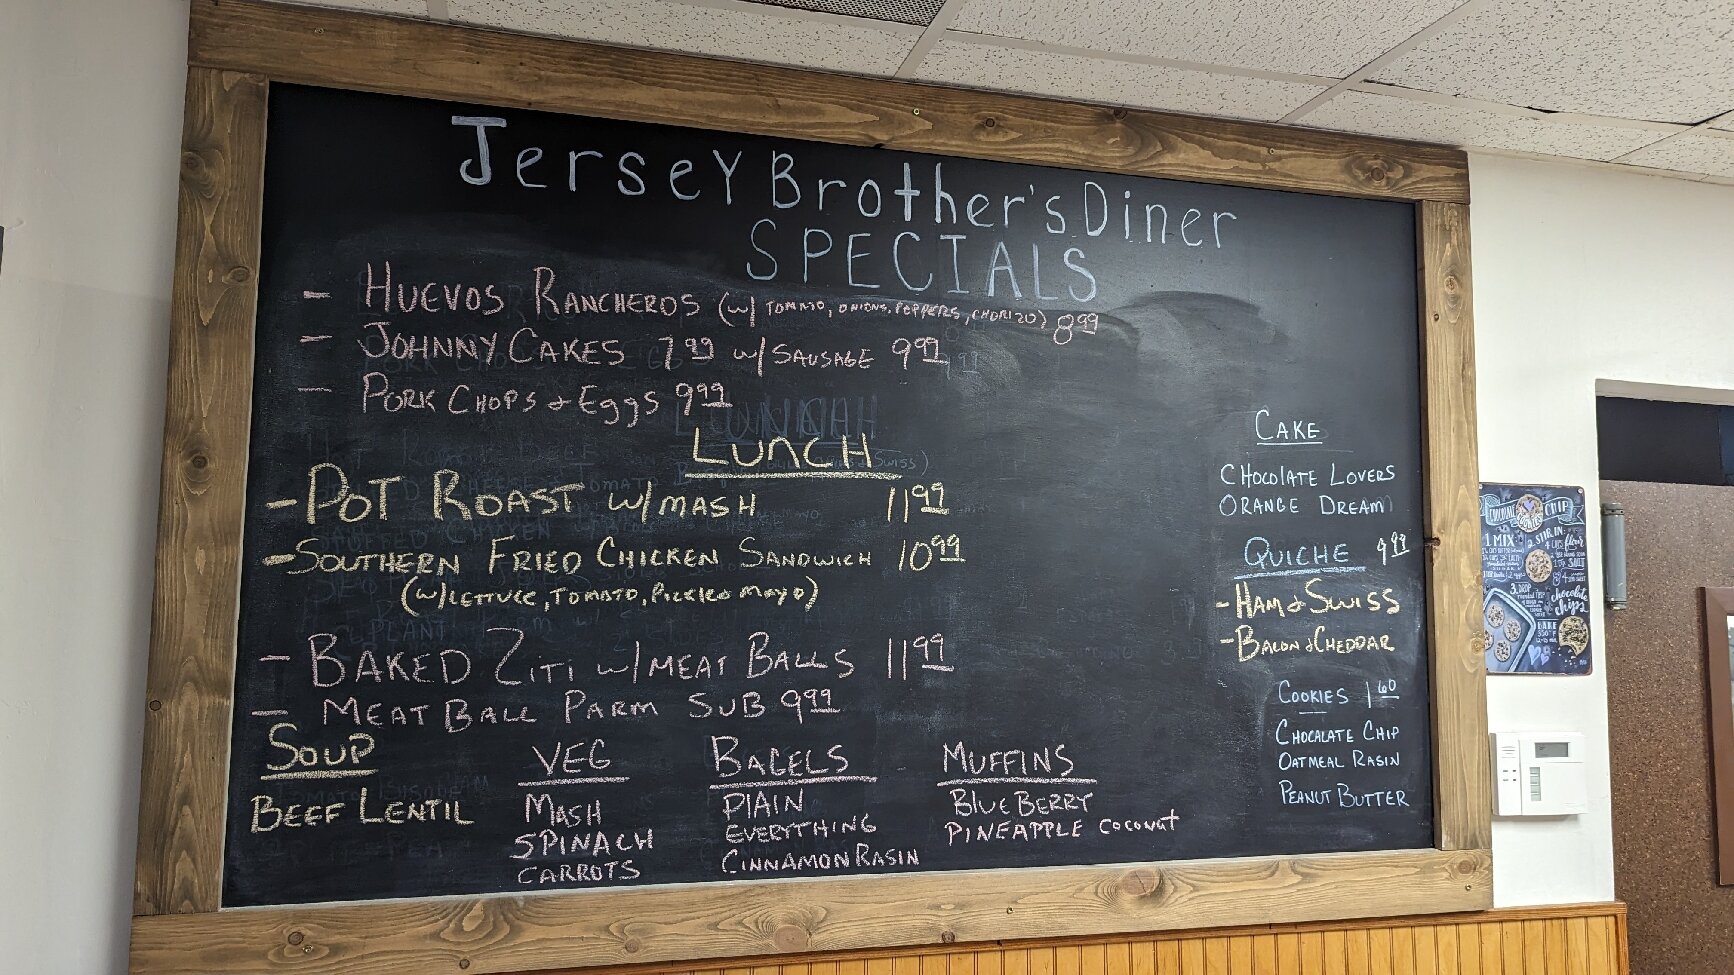 Jersey Brother's Diner
SPECIALS
- HUEVOS RANCHEROS (w/ TOMATO, ONIONS, PEPPERS, CHORIZO) 8 99
- JOHNNY CAKES 7 99 w/ SAUSAGE 9 99
- PORK CHOPS & EggS 9 99
LUNCH
- POT ROAST w/ MASH 11 99
- SOUTHERN FRIED CHICKEN SANDWICH 10 99
(w/ LETTUCE, TOMATO, PICKLES MAYO)
- BAKED ZITI w/ MEAT BALLS 11 99
- MEAT BALL PARM SUB 9 99
SOUP
BEEF LENTIL
VEG
MASH
SPINACH
CARROTS
BAGELS
PLAIN
EVERYTHING
CINNAMON RASIN
MUFFINS
BLUE BERRY
PINEAPPLE COCONUT
CAKE
CHOCOLATE LOVERS
ORANGE DREAM
QUICHE 9 99
- HAM & SWISS
- BACON & CHEDDAR
COOKIES 1 60
CHOCALATE CHIP
OATMEAL RASIN
PEANUT BUTTER
CHIP
1 MIX
2 STIR IN:
flour
SALT
3 DROP
chocolate
chips
BAKE
350°F